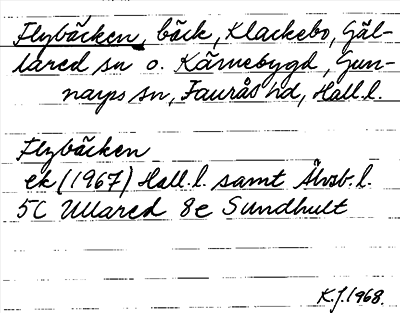 Flybäcken, bäck, Klackebo, Gäl-
lared sn o. Kärnebygd, Gun-
narps sn, Faurås hd, Hall.l.
Flybäcken
ek (1967) Hall.l. samt Älvsb.l.
5C Ullared 8e Sundhult
K.J. 1968.